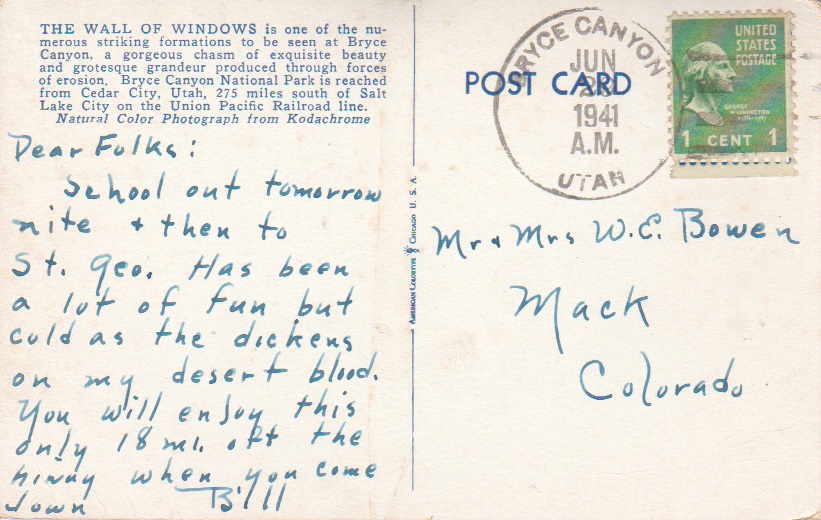 THE WALL OF WINDOWS is one of the nu-
merous striking formations to be seen at Bryce
Canyon, a gorgeous chasm of exquisite beauty
and grotesque grandeur produced through forces
of erosion. Bryce Canyon National Park is reached
from Cedar City, Utah, 275 miles south of Salt
Lake City on the Union Pacific Railroad line.
Natural Color Photograph from Kodachrome
Dear Folks:
School out tomorrow
nite + then to
St. Geo. Has been
a lot of fun but
cold as the dickens
on my desert blood.
You will enjoy this
only 18 mi. off the
hiway when you come
down Bill
AMERICAN COLORTYPE CHICAGO U. S. A.
POST CARD
BRYCE CANYON
JUN
1941
A.M.
UTAH
UNITED
STATES
POSTAGE
GEORGE
WASHINGTON
1 CENT 1
Mr + Mrs W.E. Bowen
Mack
Colorado